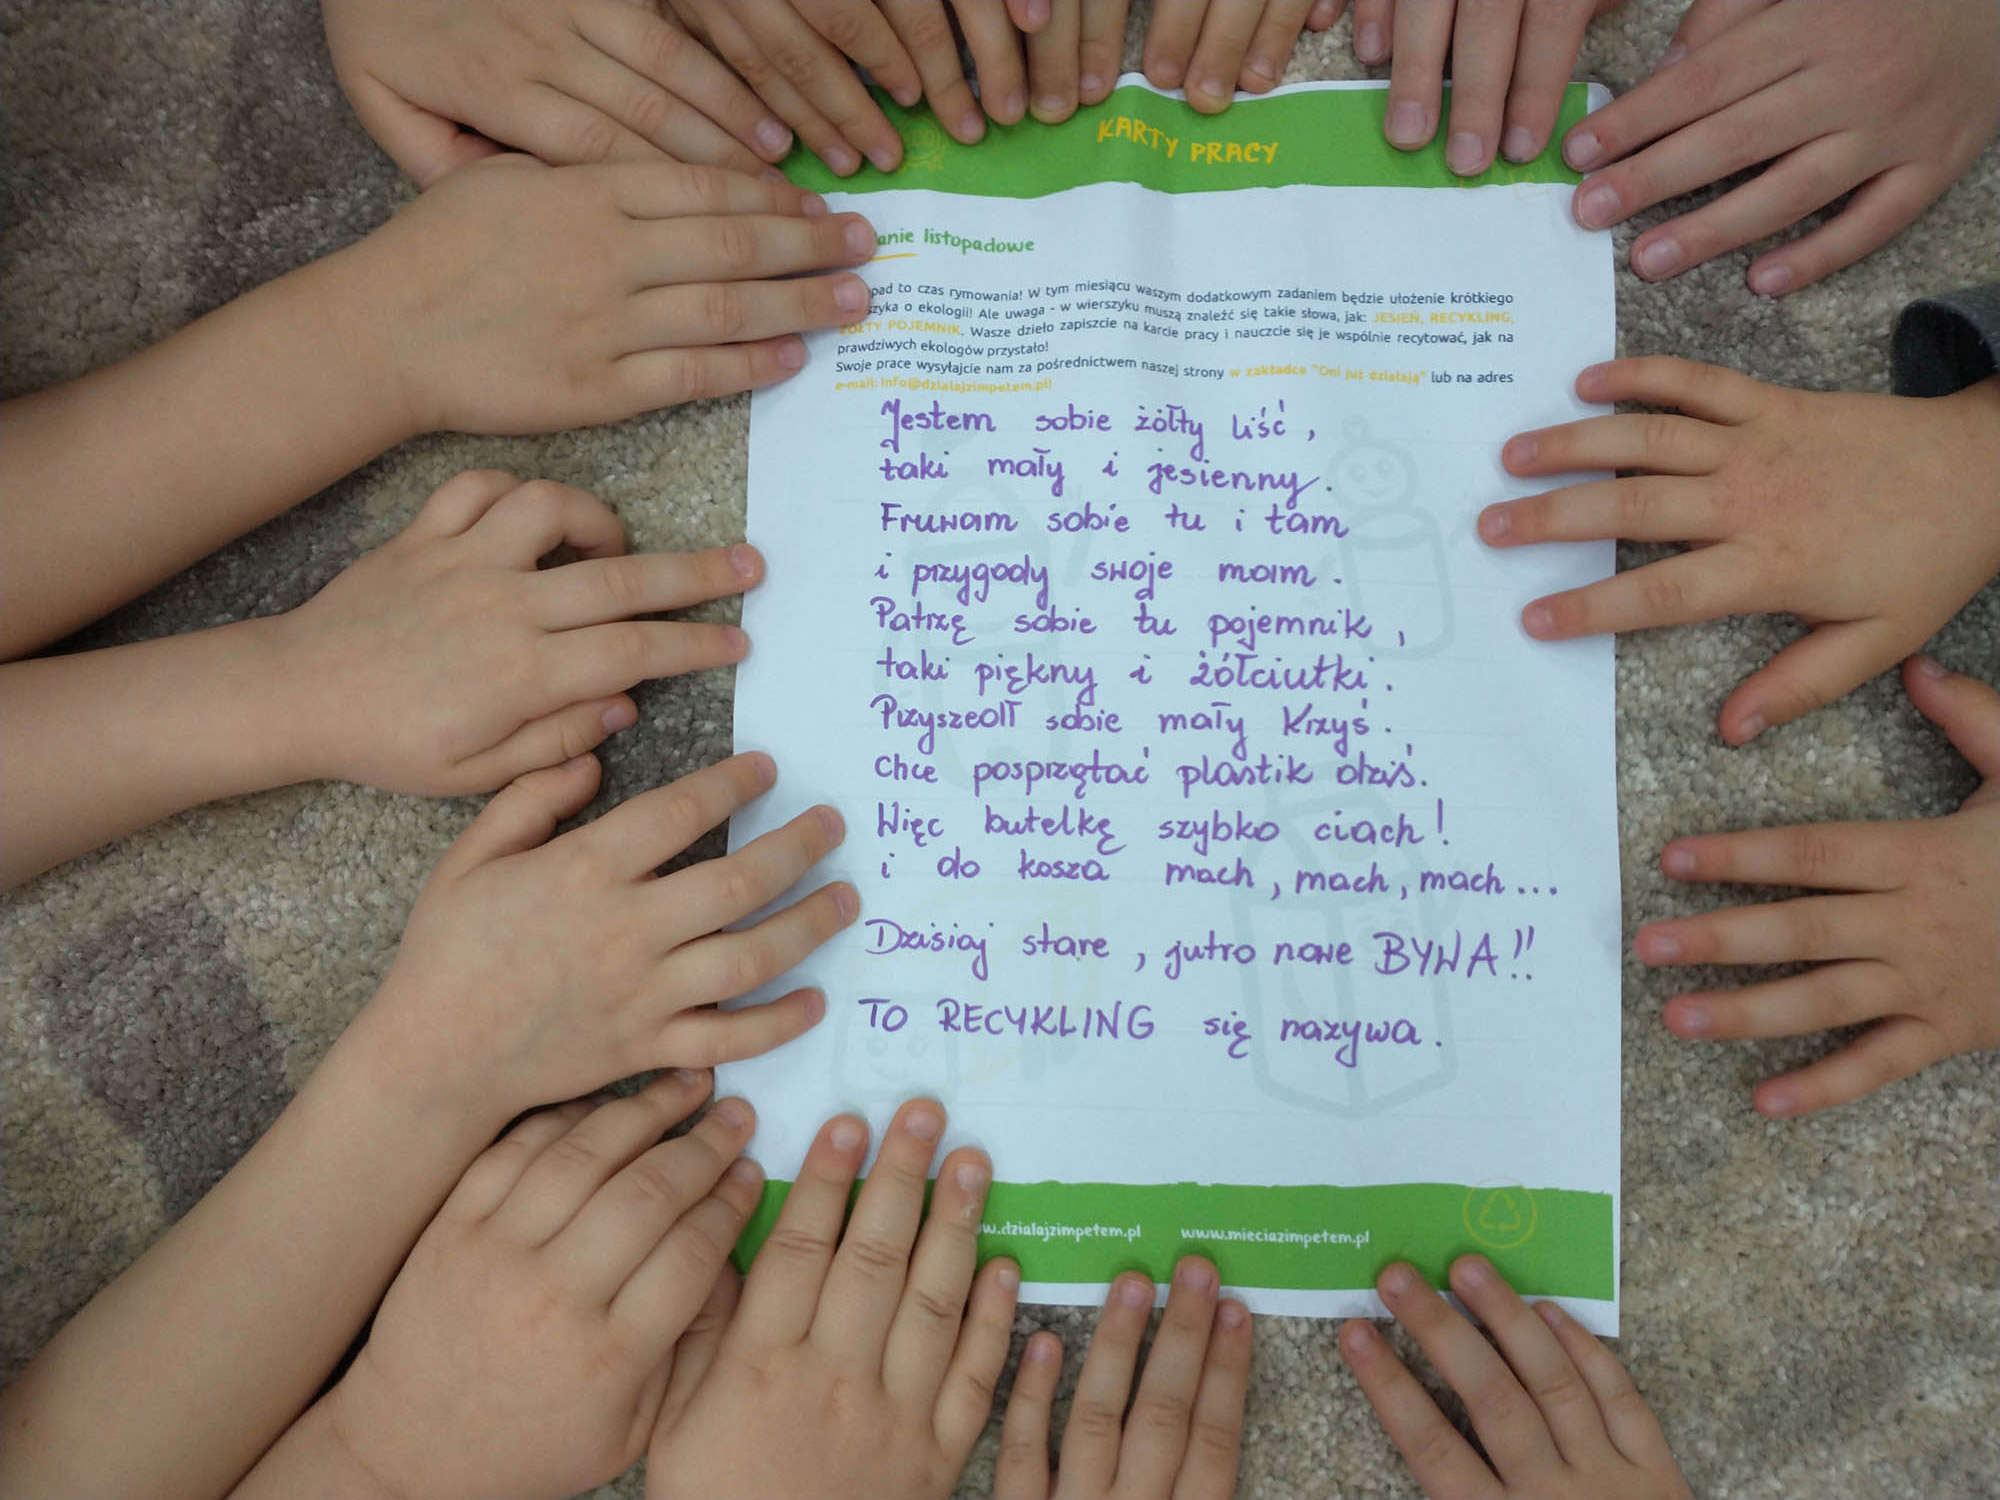 KARTY PRACY
anie listopadowe
pad to czas rymowania! W tym miesiącu waszym dodatkowym zadaniem będzie ułożenie krótkiego
szyka o ekologii! Ale uwaga - w wierszyku muszą znaleźć się takie słowa, jak: JESIEŃ, RECYKLING,
ŻÓŁTY POJEMNIK. Wasze dzieło zapiszcie na karcie pracy i nauczcie się je wspólnie recytować, jak na
prawdziwych ekologów przystało!
Swoje prace wysyłajcie nam za pośrednictwem naszej strony w zakładce "Oni już działają" lub na adres
e-mail: info@dzialajzimpetem.pl!
Jestem sobie żółty liść,
taki mały i jesienny.
Fruwam sobie tu i tam
i przygody swoje mam.
Patrzę sobie tu pojemnik,
taki piękny i żółciutki.
Przyszedł sobie mały Krzyś.
Chce posprzątać plastik dziś.
Więc butelkę szybko ciach!
i do kosza mach, mach, mach...
Dzisiaj stare, jutro nowe BYWA!!
TO RECYKLING się nazywa.
w.dzialajzimpetem.pl www.mieciazimpetem.pl